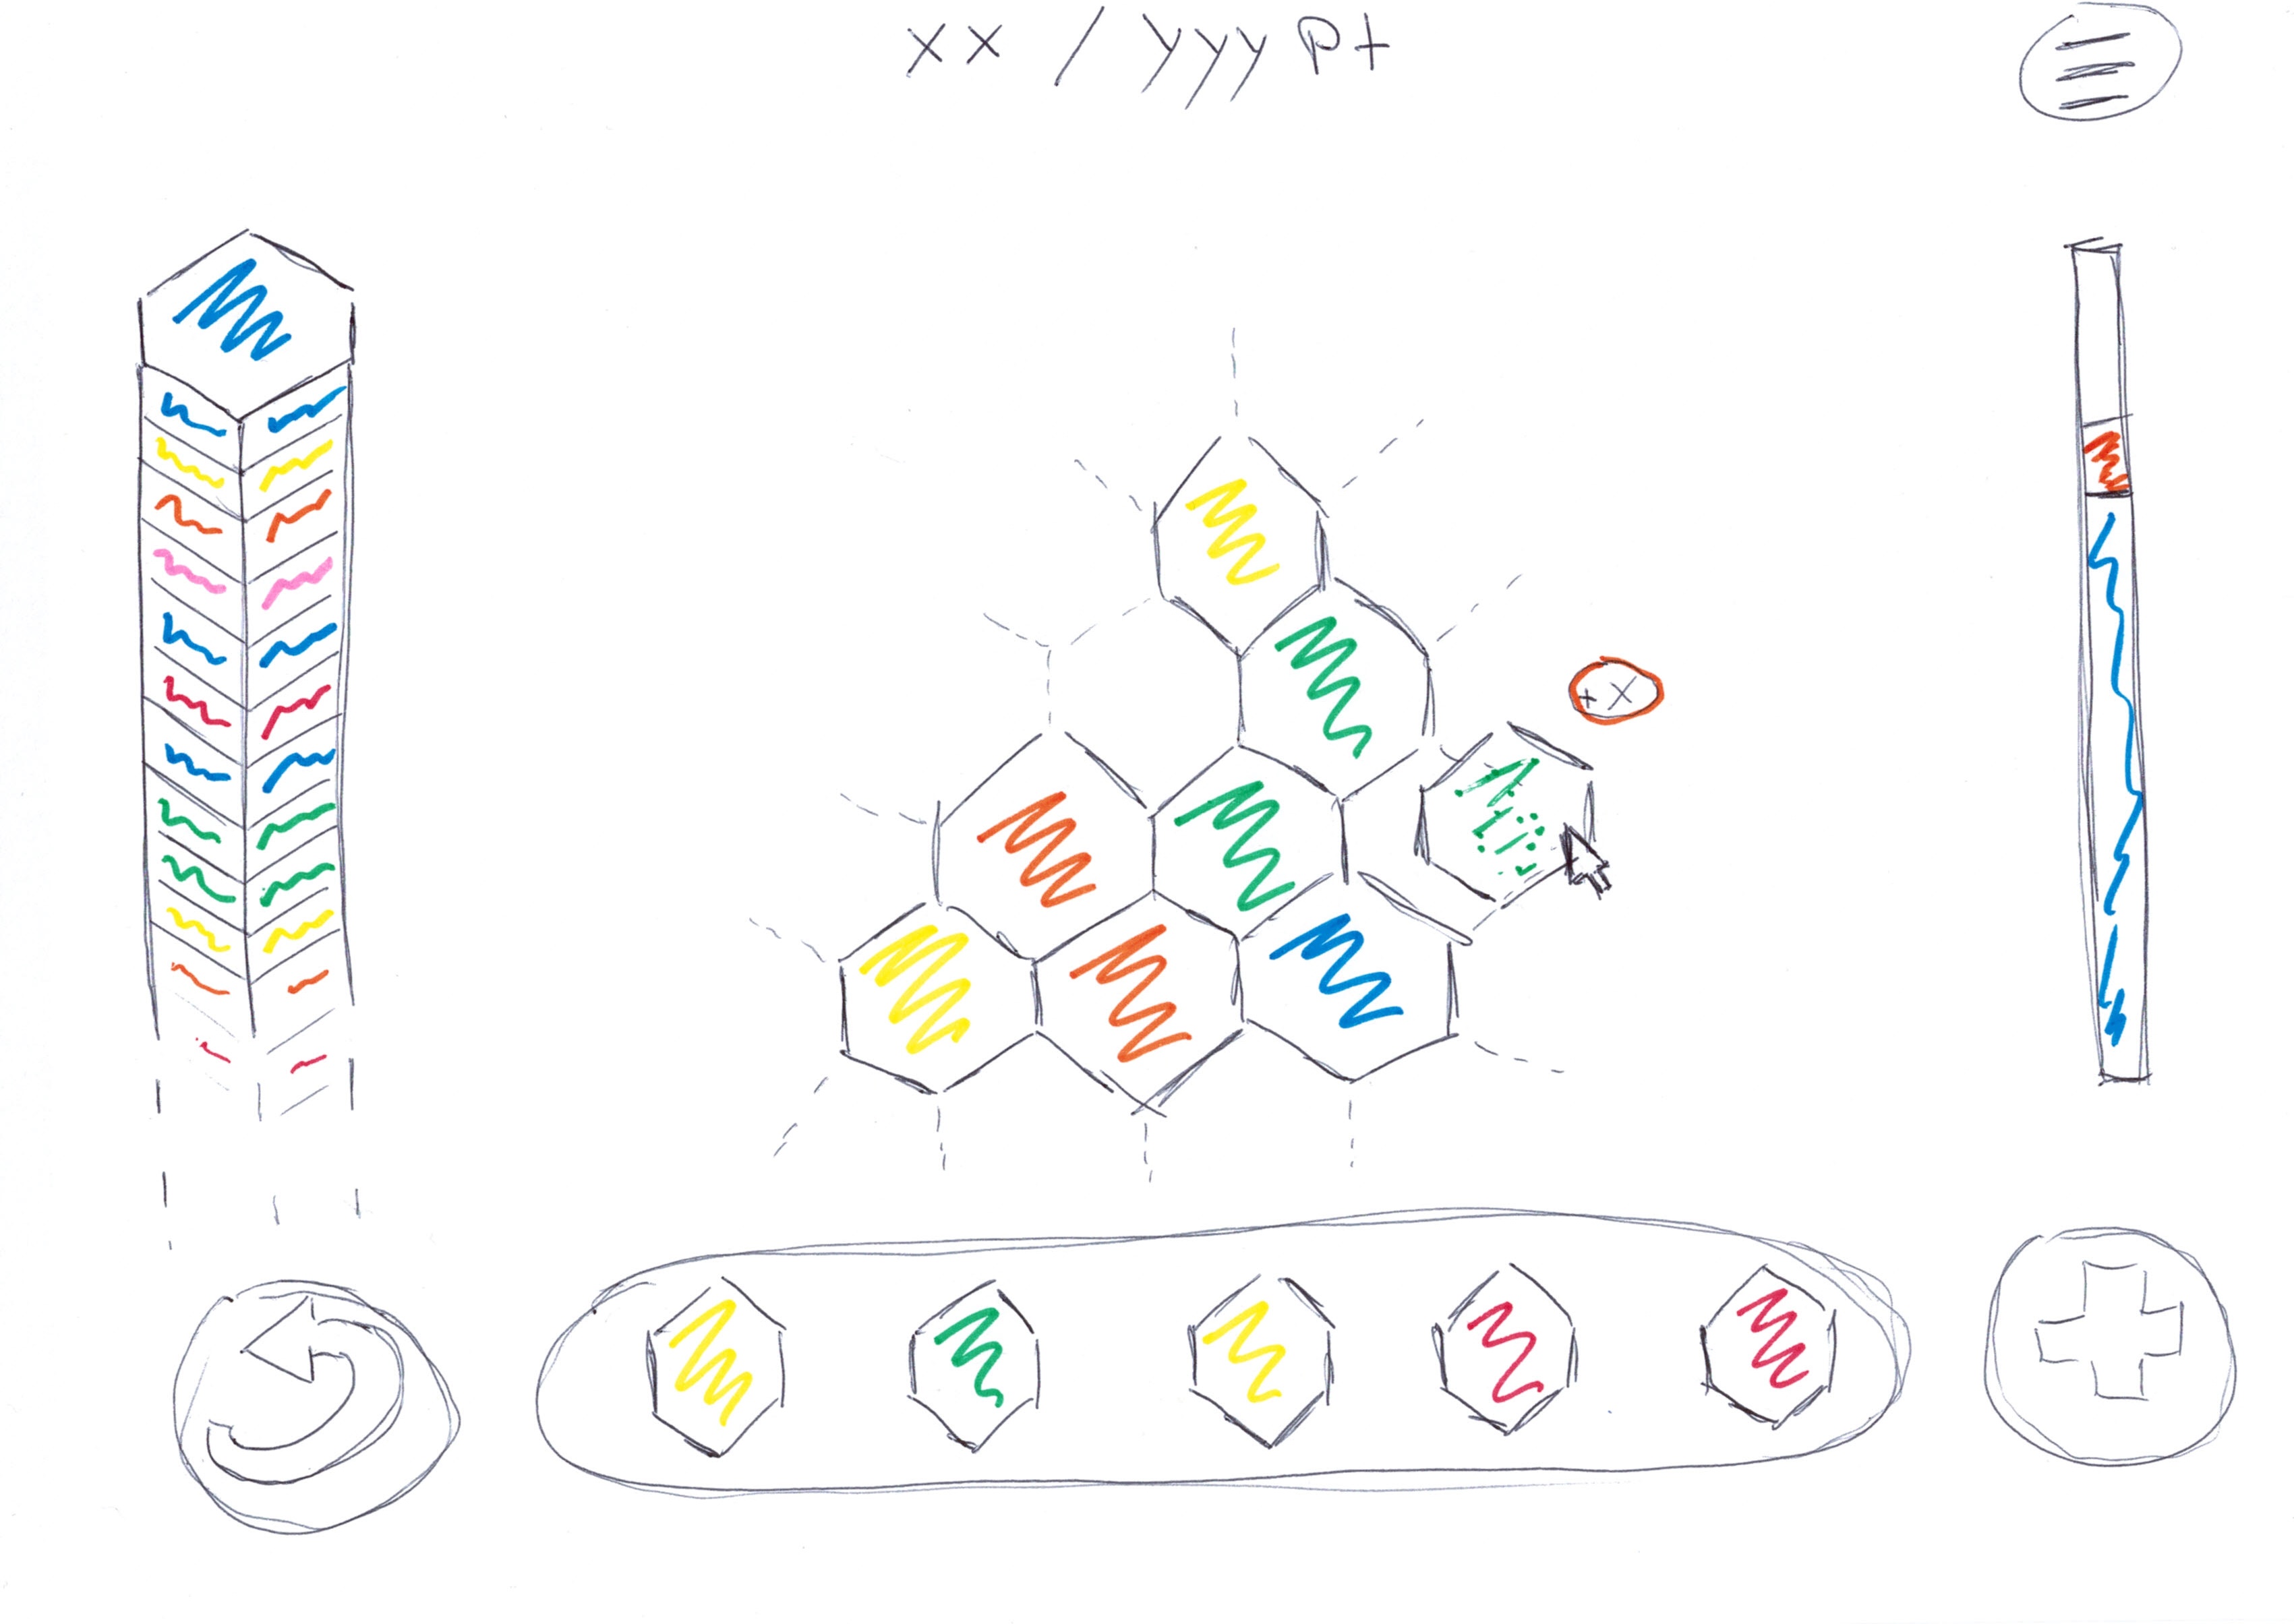 xx / yyy pt
+x